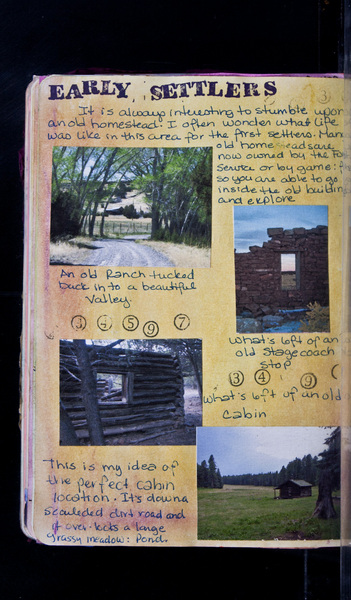 EARLY SETTLERS
3
It is always interesting to stumble upon
an old homestead. I often wonder what life
was like in this area for the first settlers. Many
old homesteads are
now owned by the
Service or by game
so you are able to go
inside the old building
and explore
An old Ranch tucked
back in to a beautiful
Valley.
3 4 5 9 7
What's left of an
old Stagecoach
Stop
3 4 9
What's left of an old
Cabin
This is my idea of
the perfect cabin
location. It's down a
secluded dirt road and
it over looks a large
grassy meadow : Pond.